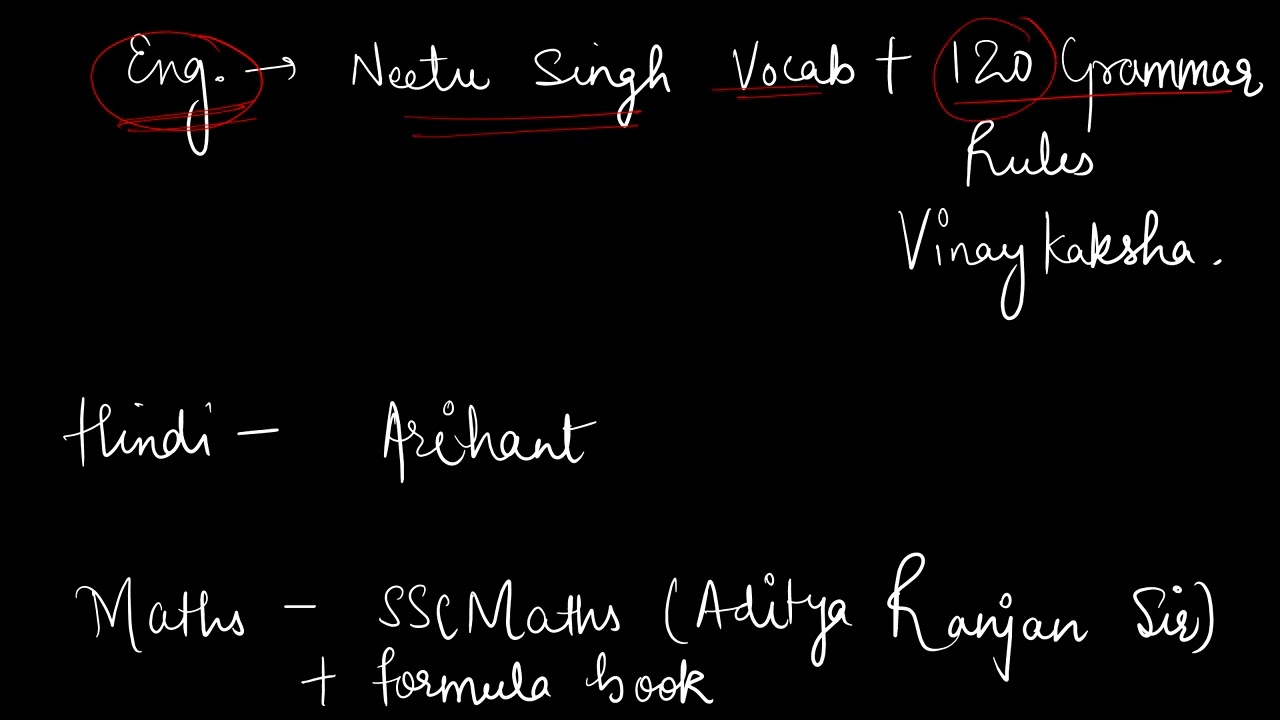 Eng. → Neetu Singh Vocab + 120 Grammar
Rules
Vinay Kaksha.
Hindi - Arihant
Maths - SSC Maths (Aditya Ranjan Sir)
+ formula book